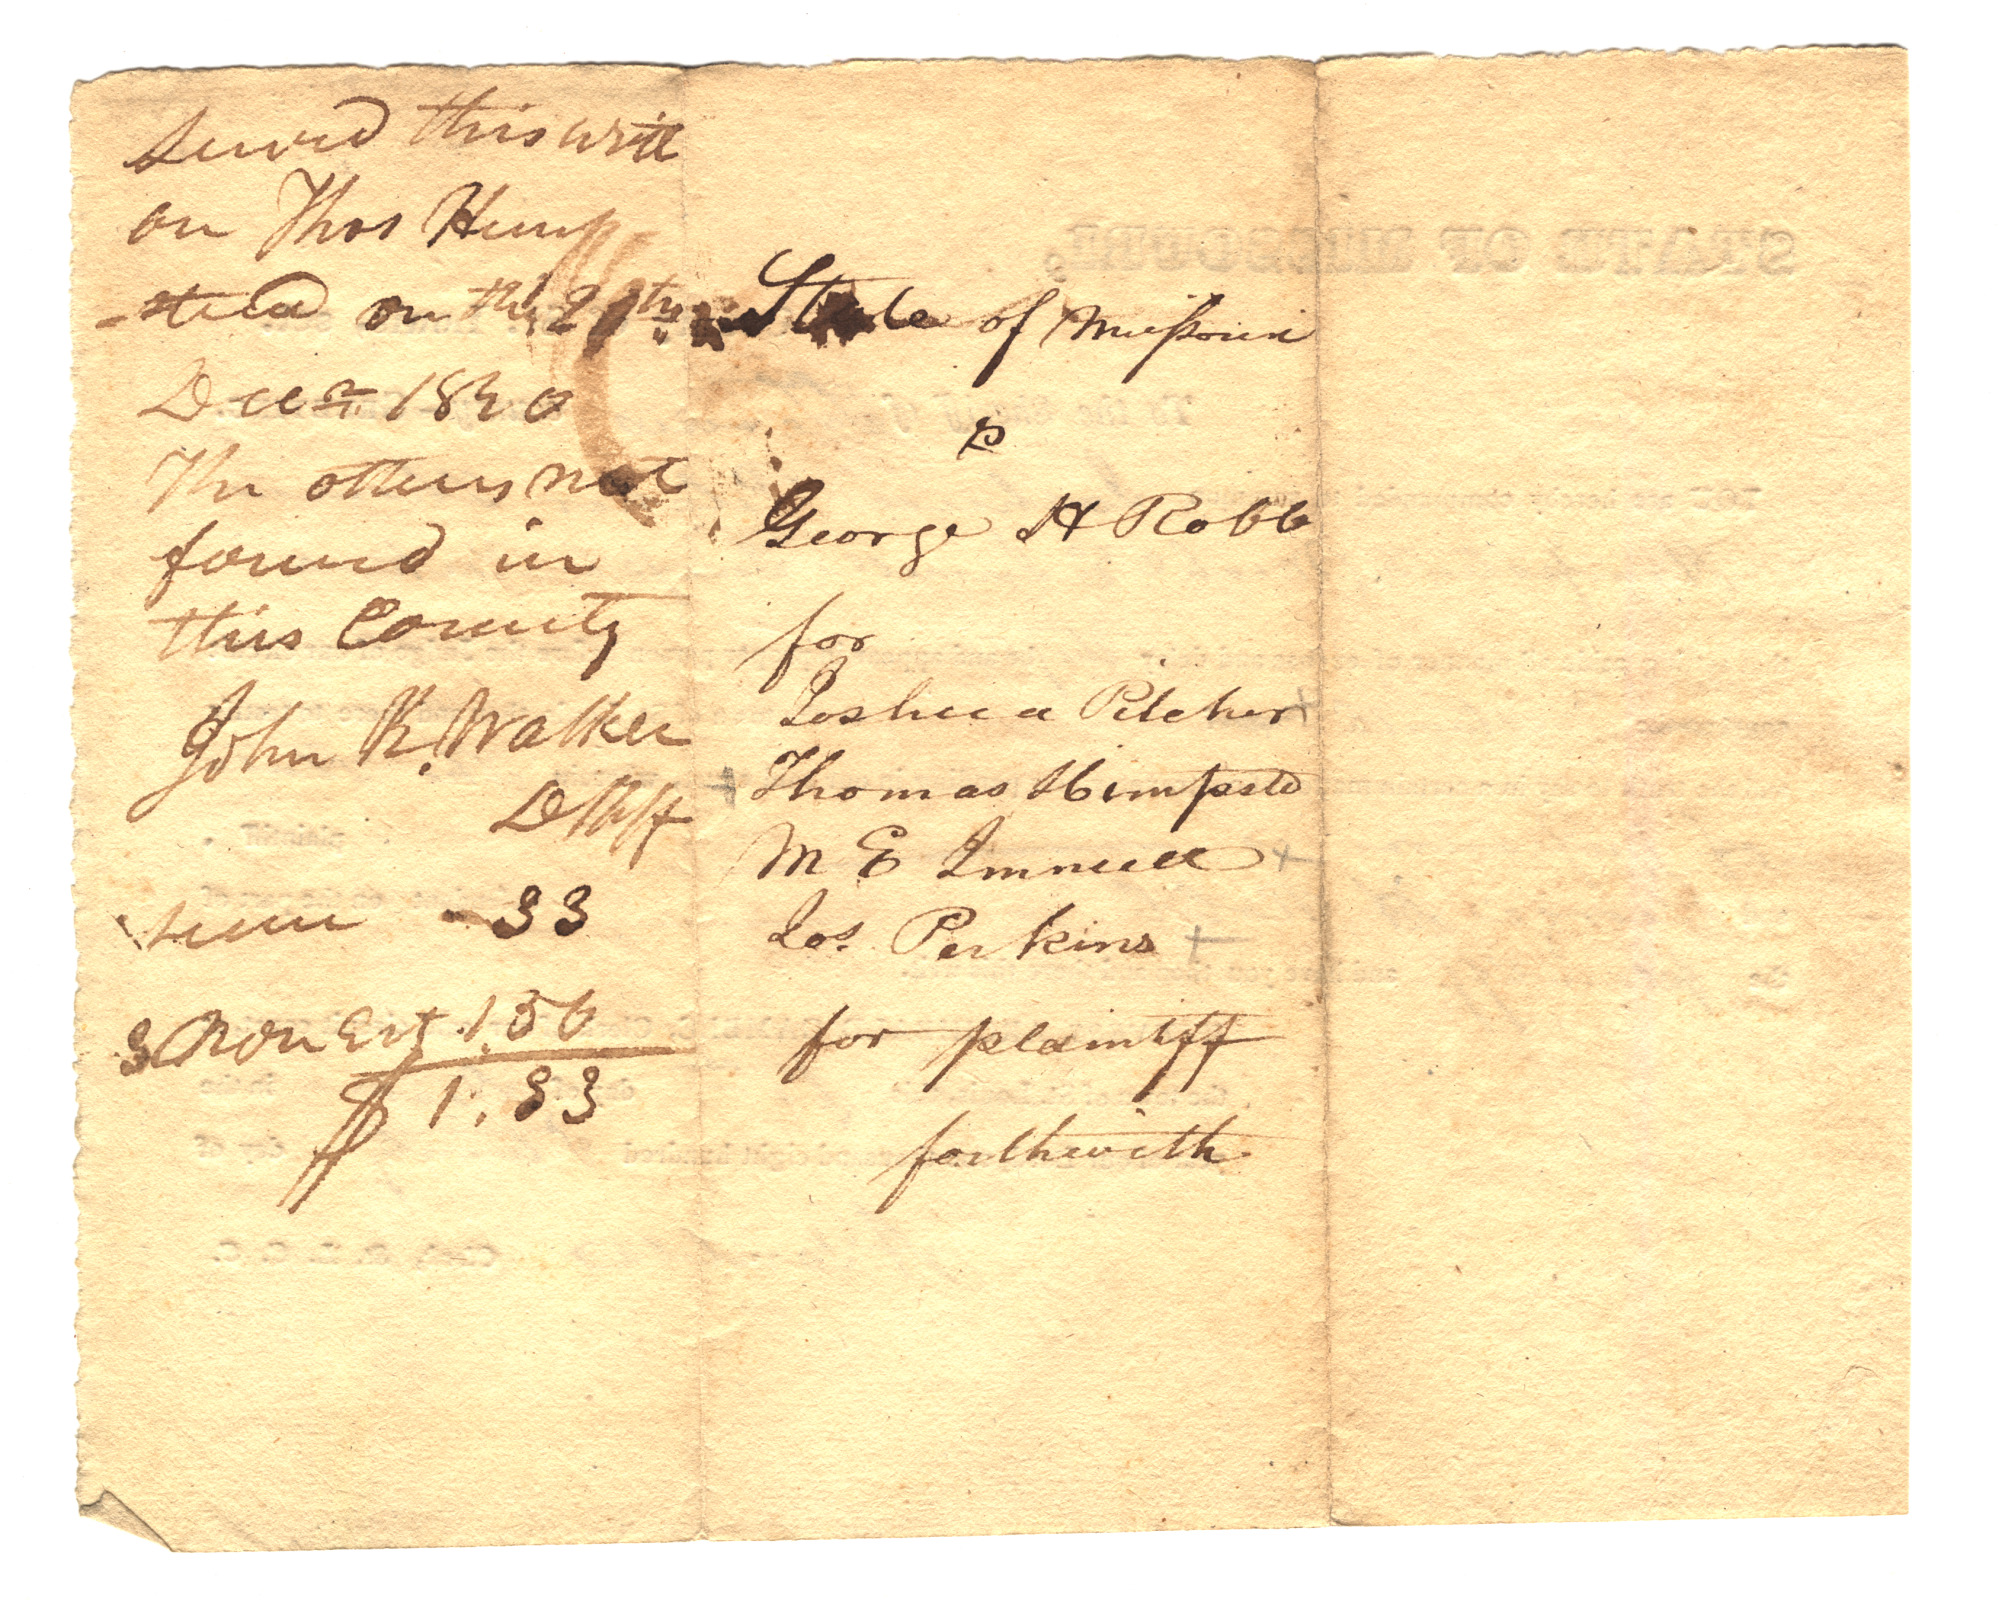 served this writ
on Thos Hemp
-stead on the
Decr 1820
The others not
found in
this County
John K. Walker
DShff
serv - 33
3 Non Est 1.50
$ 1.83
State of Missouri
vs
George H Robb
for
Joshua Pilcher +
+ Thomas Hempstd
M E Immell +
Jos. Perkins +
for plaintiff
forthwith
STATE OF MISSOURI,